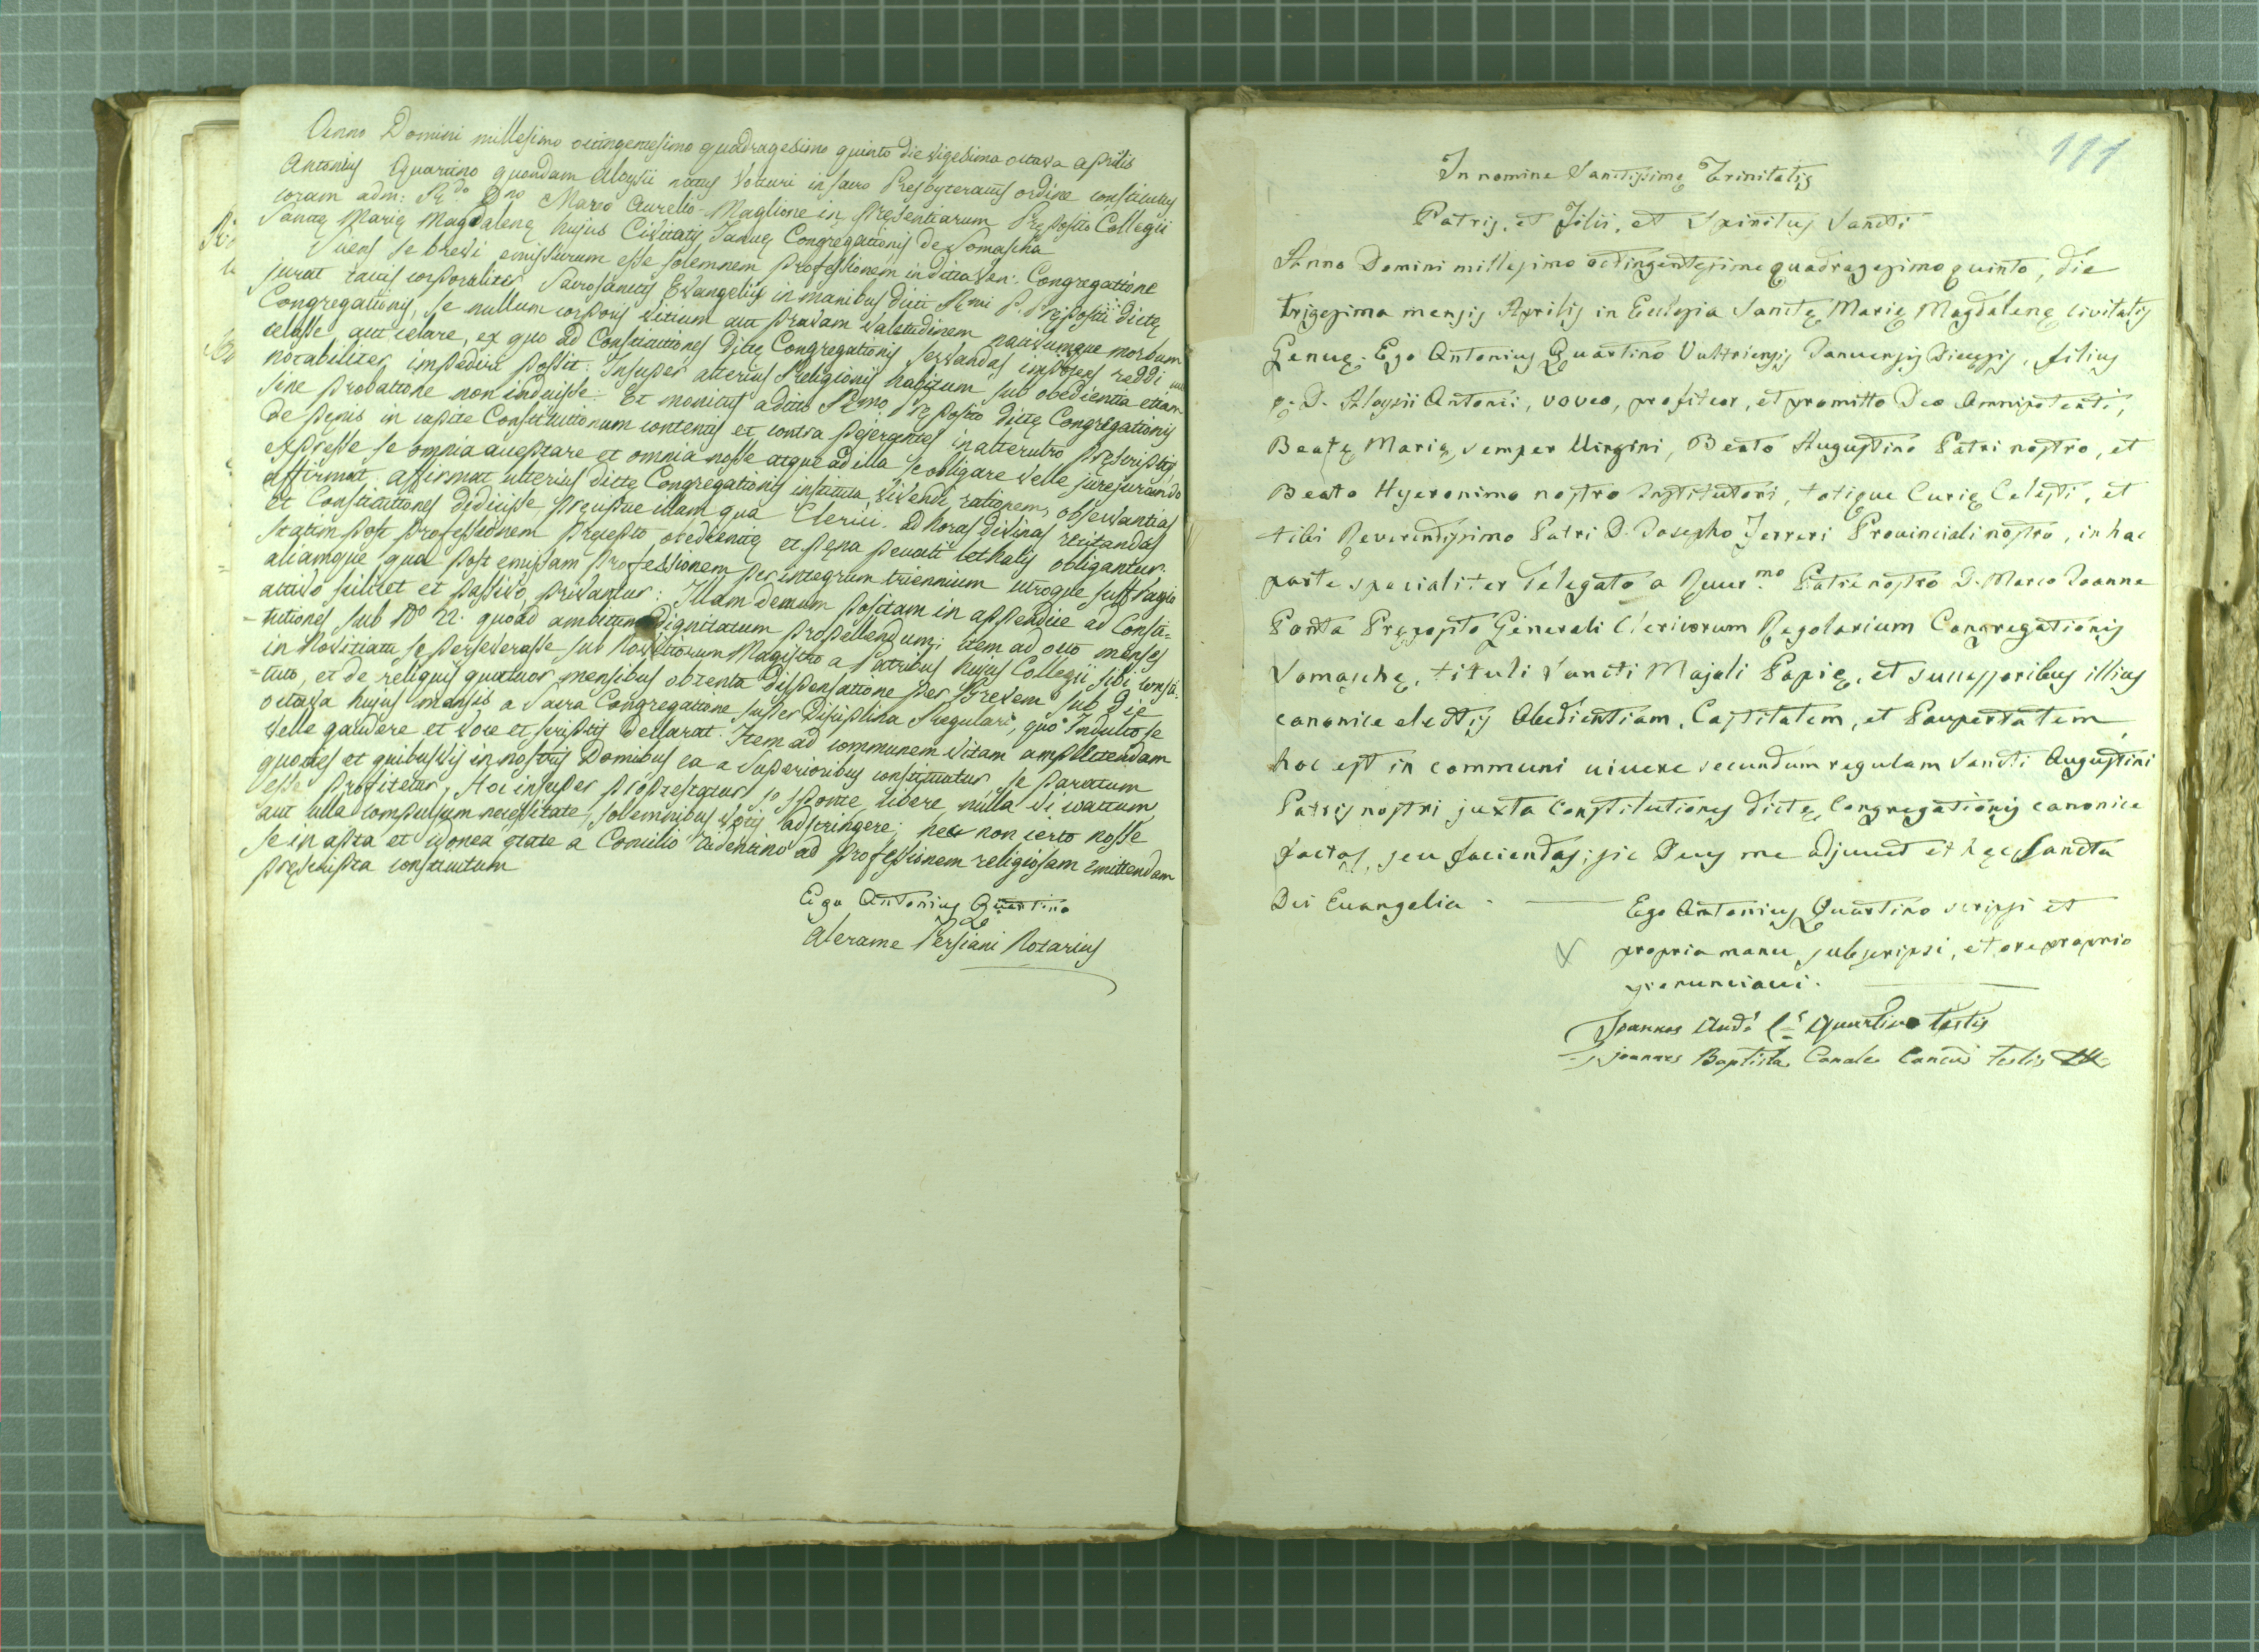 Anno Domini millesimo octingentesimo quadragesimo quinto die vigesima octava aprilis
Antonius Quartino quondam Aloysii natus Volturi in sacro Presbyteratus ordine constitutus
coram adm: R.do D.no Marco Aurelio Maglione in presentiarum Preposito Collegii
Sanctę Marię Magdalenę hujus Civitatis Januę Congregationis de Somascha
sciens se brevi emissurum esse solemnem professionem in dicta Congregatione
jurat tactis corporaliter Sacrosanctis Evangeliis in manibus dicti R.mi P. Prępositi dictę
Congregationis, se nullum corporis vitium aut pravam valetudinem nactumque morbum
celasse aut celare, ex quo ad Constitutiones dictę Congregationis servandas impotens reddi
notabiliter impediri possit. Insuper alterius Religionis habitum sub obedientia etiam
sine probatione non induisse. Et monitus a dicto R.mo Pręposito dictę Congregationis
de penis in capite Constitutionum contentis et contra pejerantes in alterutro pręscriptis
expresse se omnia acceptare et omnia nosse atque ad illa se obligare velle jurejurando
affirmat. Affirmat ulterius dictę Congregationis instituta, vivendi rationem, observantias
et Constitutiones didicisse, pręcipue illam qua Clerici ad horas divinas recitandas
statim post professionem pręcepto obedientię et pena peccati lethalis obligantur.
aliamque qua post emissam Professionem per integrum triennium utroque suffragio
activo scilicet et passivo, privantur: Illam demum positam in appendice ad Consti=
=tutiones sub N.o 22. quoad ambitum Dignitatum propellendum; item ad octo menses
in Novitiatu se perseverasse sub Novitiorum Magistro a Patribus hujus Collegii sibi consti=
=tuto, et de reliquis quatuor mensibus obtenta dispensatione per Brevem sub die
octava hujus mensis a Sacra Congregatione super Disciplina Regulari, quo Indulto se
velle gaudere et voce et scriptis declarat. Item ad communem vitam amplectendam
quoties et quibusvis in nostris Domibus ea a Superioribus constituatur se paratum
esse profitetur, Hoc insuper protestatur se sponte, libere, nulla vi coactum,
aut ulla compulsum necessitate, solemnibus votis adstringere; nec non certo nosse
se in apta et idonea ętate a Concilio Tridentino ad professionem religiosam emittendam
pręscripta constitutum
Ego Antonius Quartino
Alerame Persiani Notarius
111
In nomine Sanctissimę Trinitatis
Patris, et Filii, et Spiritus Sancti
Anno Domini millesimo octingentesimo quadragesimo quinto, die
trigesima mensis Aprilis in Ecclesia Sanctę Marię Magdalenę civitatis
Genuę. Ego Antonius Quartino Vultriensis Januensis Diecesis, filius
q. D. Aloysii Antonii, voveo, profiteor, et promitto Deo Omnipotenti,
Beatę Marię semper Virgini, Beato Augustino Patri nostro, et
Beato Hyeronimo nostro Institutori, totique Curię Celesti, et
tibi Reverendissimo Patri D. Josepho Ferreri Provinciali nostro, in hac
parte specialiter delegato a Reve.mo Patre nostro D. Marco Joanne
Ponta Pręposito Generali Clericorum Regolarium Congregationis
Somaschę, tituli Sancti Majoli Papię, et successoribus illius
canonice electis Obedientiam, Castitatem, et Paupertatem
hoc est in communi vivere secundum regulam Sancti Augustini
Patris nostri juxta Constitutiones dictę Congregationis canonice
factas, seu faciendas; sic Deus me adjuvet et hęc Sancta
Dei Evangelia.
Ego Antonius Quartino scripsi et
propria manu subscripsi, et ore proprio
pronunciavi.
Joannes Quartino testis
Joannes Baptista Canale testis